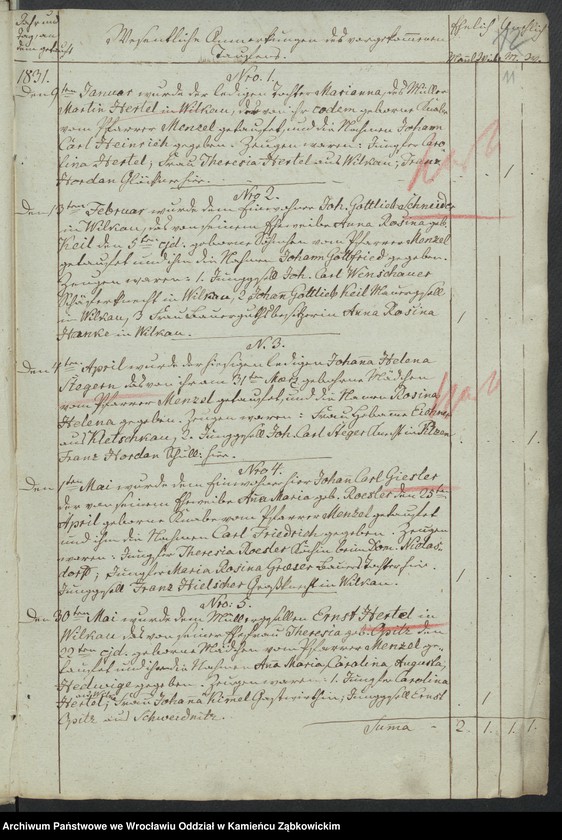 Jahr und Tag, an dem getauft
Wesentliche Anmerkungen des vorgekommenen Taufens.
Ehrlich Unehrlich
Männl. Weibl. M. W.
11
1831. Nro. 1.
Den 9ten Januar wurde der ledigen Tochter Marianna, des Müller
Martin Hertel in Wilkau, der von ihr eodem geborne Knabe
vom Pfarrer Menzel getauft, und die Nahmen Johann
Carl Heinrich gegeben. Zeugen waren: Jungfer Caro
lina Hertel; Frau Theresia Hertel aus Wilkau; Franz
Hordan Glöckner hier. 1.
Nro 2.
Den 13ten Februar wurde dem Einwohner Joh. Gottlieb Schneider
in Wilkau, das von seinem Eheweibe Anna Rosina geb.
Keil den 5ten ejd. geborne Söhnchen vom Pfarrer Menzel
getauft und ihm die Nahmen Johann Gottfried gegeben.
Zeugen waren: 1. Junggesell Joh. Carl Winschauer
Schäferknecht in Wilkau, 2 Johan Gottlieb Keil Mauergesell
in Wilkau, 3 Frau Bauerguthsbesitzerin Anna Rosina
Hanke in Wilkau. 1
N. 3.
Den 4ten April wurde der hiesigen ledigen Johana Helena
Stegern das von ihr am 31ten März geborne Mädchen
vom Pfarrer Menzel getauft, und die Namen Rosina
Helena gegeben. Zeugen waren: Frau Hebame
aus Kletschkau, 2. Junggesell Joh. Carl Steger Knecht in
Franz Hordan Schull: hier. 1.
Nro 4.
Den 1ten Mai wurde dem Einwohner hier Johan Carl Giesler
der von seinem Eheweibe Ana Maria geb. Roesler den 25ten
April geborne Knabe vom Pfarrer Menzel getauft
und ihm die Nahmen Carl Friedrich gegeben. Zeugen
waren: Jungfer Theresia Roesler Köchin beim Dom. Nicolas
dorff; Jungfer Maria Rosina Grieser Bauers Tochter hier.
Junggesell Franz Hielscher Großknecht in Wilkau. 1
Nro: 5.
Den 30ten Mai wurde dem Müllergesellen Ernst Hertel in
Wilkau das von seiner Ehefrau Theresia geb. Opitz den
22ten ejd. geborne Mädchen vom Pfarrer Menzel ge-
tauft und ihr die Nahmen Ana Maria, Carolina, Augusta,
Hedwige gegeben. Zeugen waren: 1. Jungfer Carolina
Hertel; Frau Johana Kimel Gastwirthin; Junggesell Ernst
Opitz aus Schweidnitz. 1
Suma - 2. 1. 1. 1.
Archiwum Państwowe we Wrocławiu Oddział w Kamieńcu Ząbkowickim